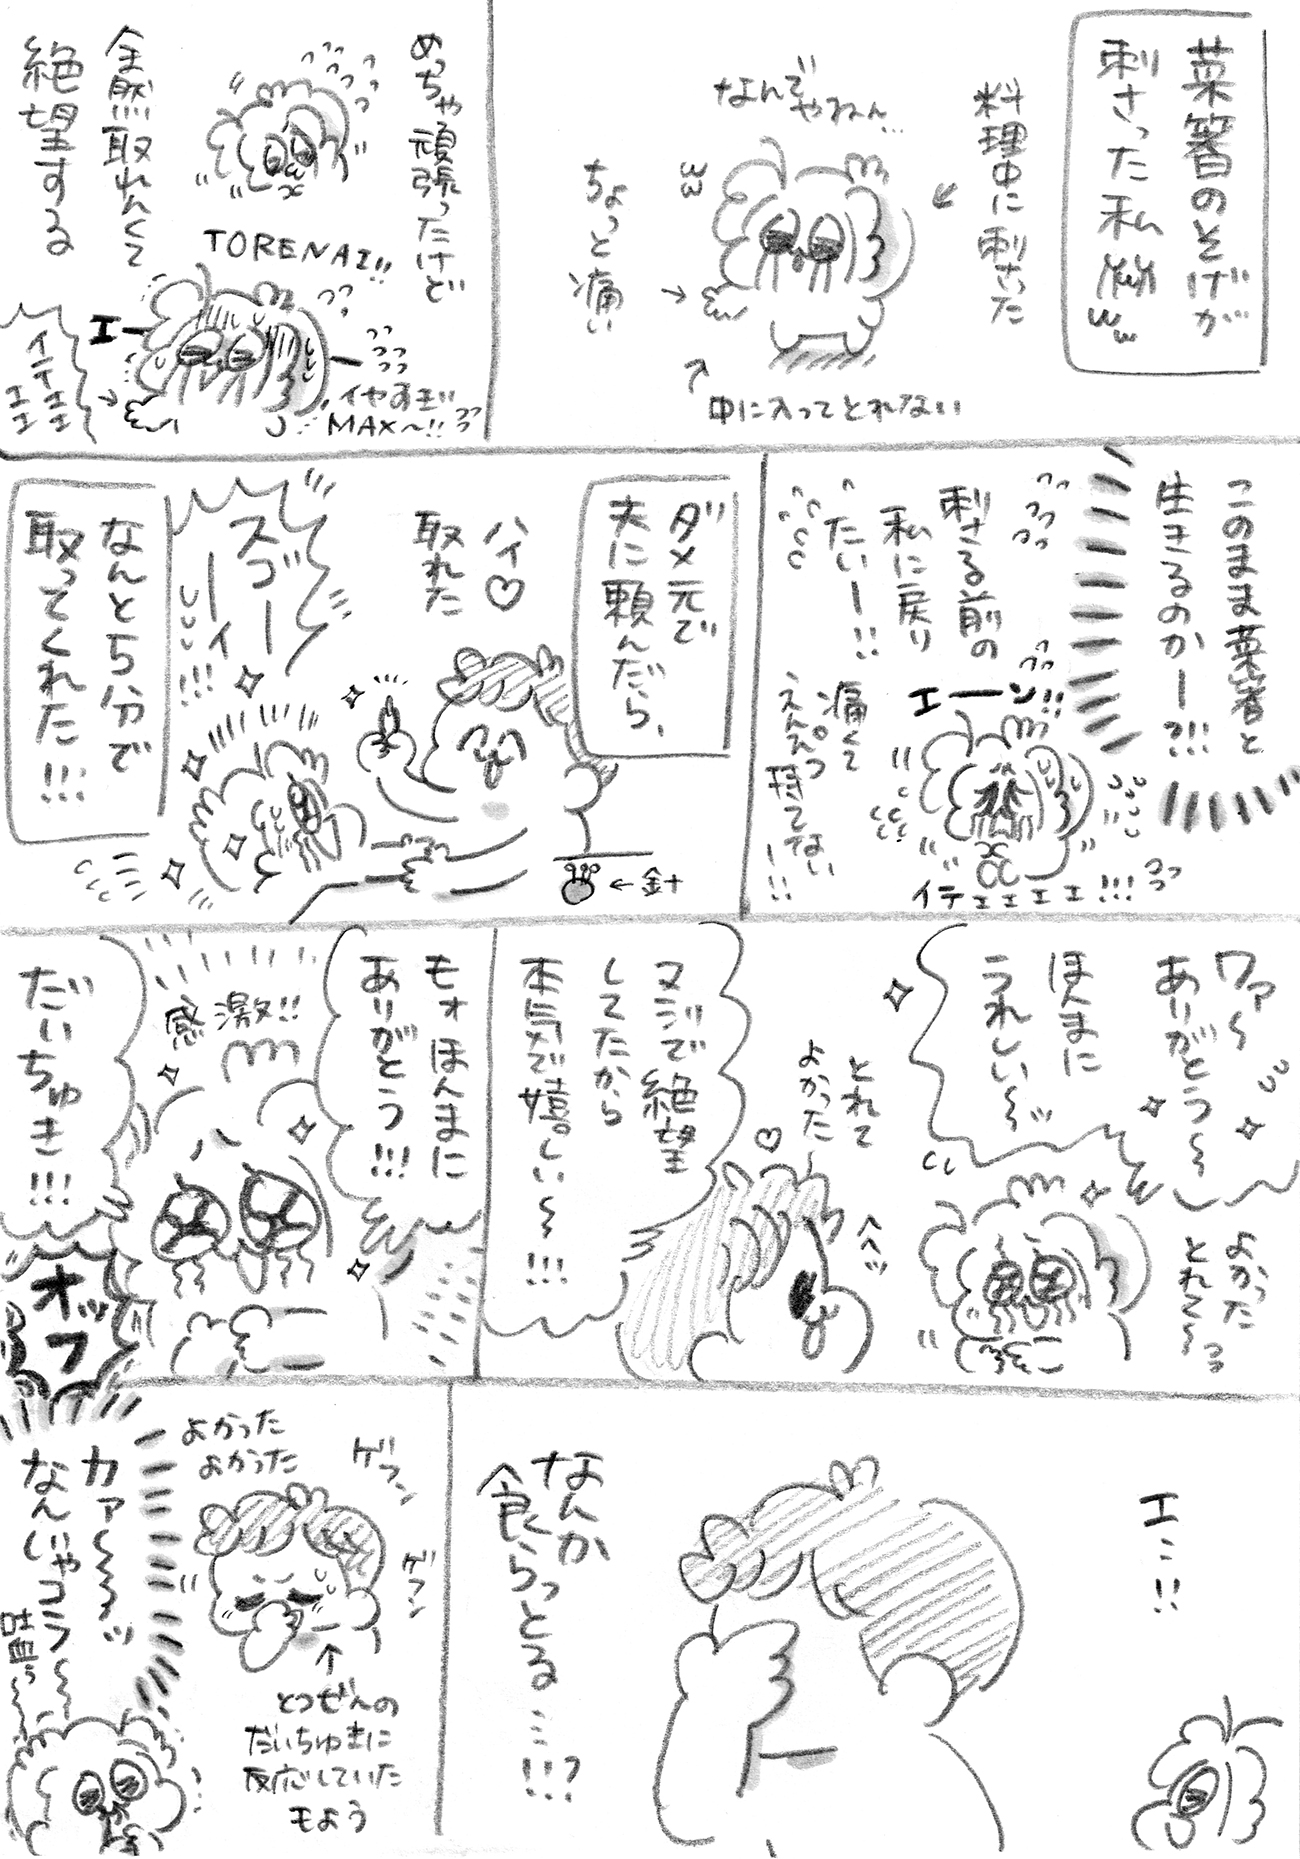 菜箸のそげが
刺さった私
料理中に刺さった
なんでやねん…
ちょっと痛い
中に入ってとれない
めっちゃ頑張ったけど
全然取れんくて
絶望する
TORENAI!!
エー
イヤすぎ!!
MAX〜!!
イテェェ
ェェ
このまま菜箸と
生きるのかー?!!!
刺さる前の
私に戻り
たいー!!
エーン!!
痛くて
えんぴつ
持てない
ー!!
イテェェェェ!!!
ダメ元で
夫に頼んだら、
ハイ♡
取れた
←針
スゴーーイ!!!
なんと5分で
取ってくれた!!!
ワァ〜
ありがとう〜
ほんまに
うれしい〜ッ
よかった
とれて〜
とれて
よかった
♡
ヘヘッ
マジで絶望
してたから
本気で嬉しい〜!!!
モォほんまに
ありがとう!!!
感激!!
だいちゅき!!!
オッフ
エ…!!
なんか
食らっとる…!!?
よかった
よかった
ゲフン
ゲフン
とつぜんの
だいちゅきに
反応していた
もよう
カァ〜〜ッ
なんじゃコラ〜
吐血